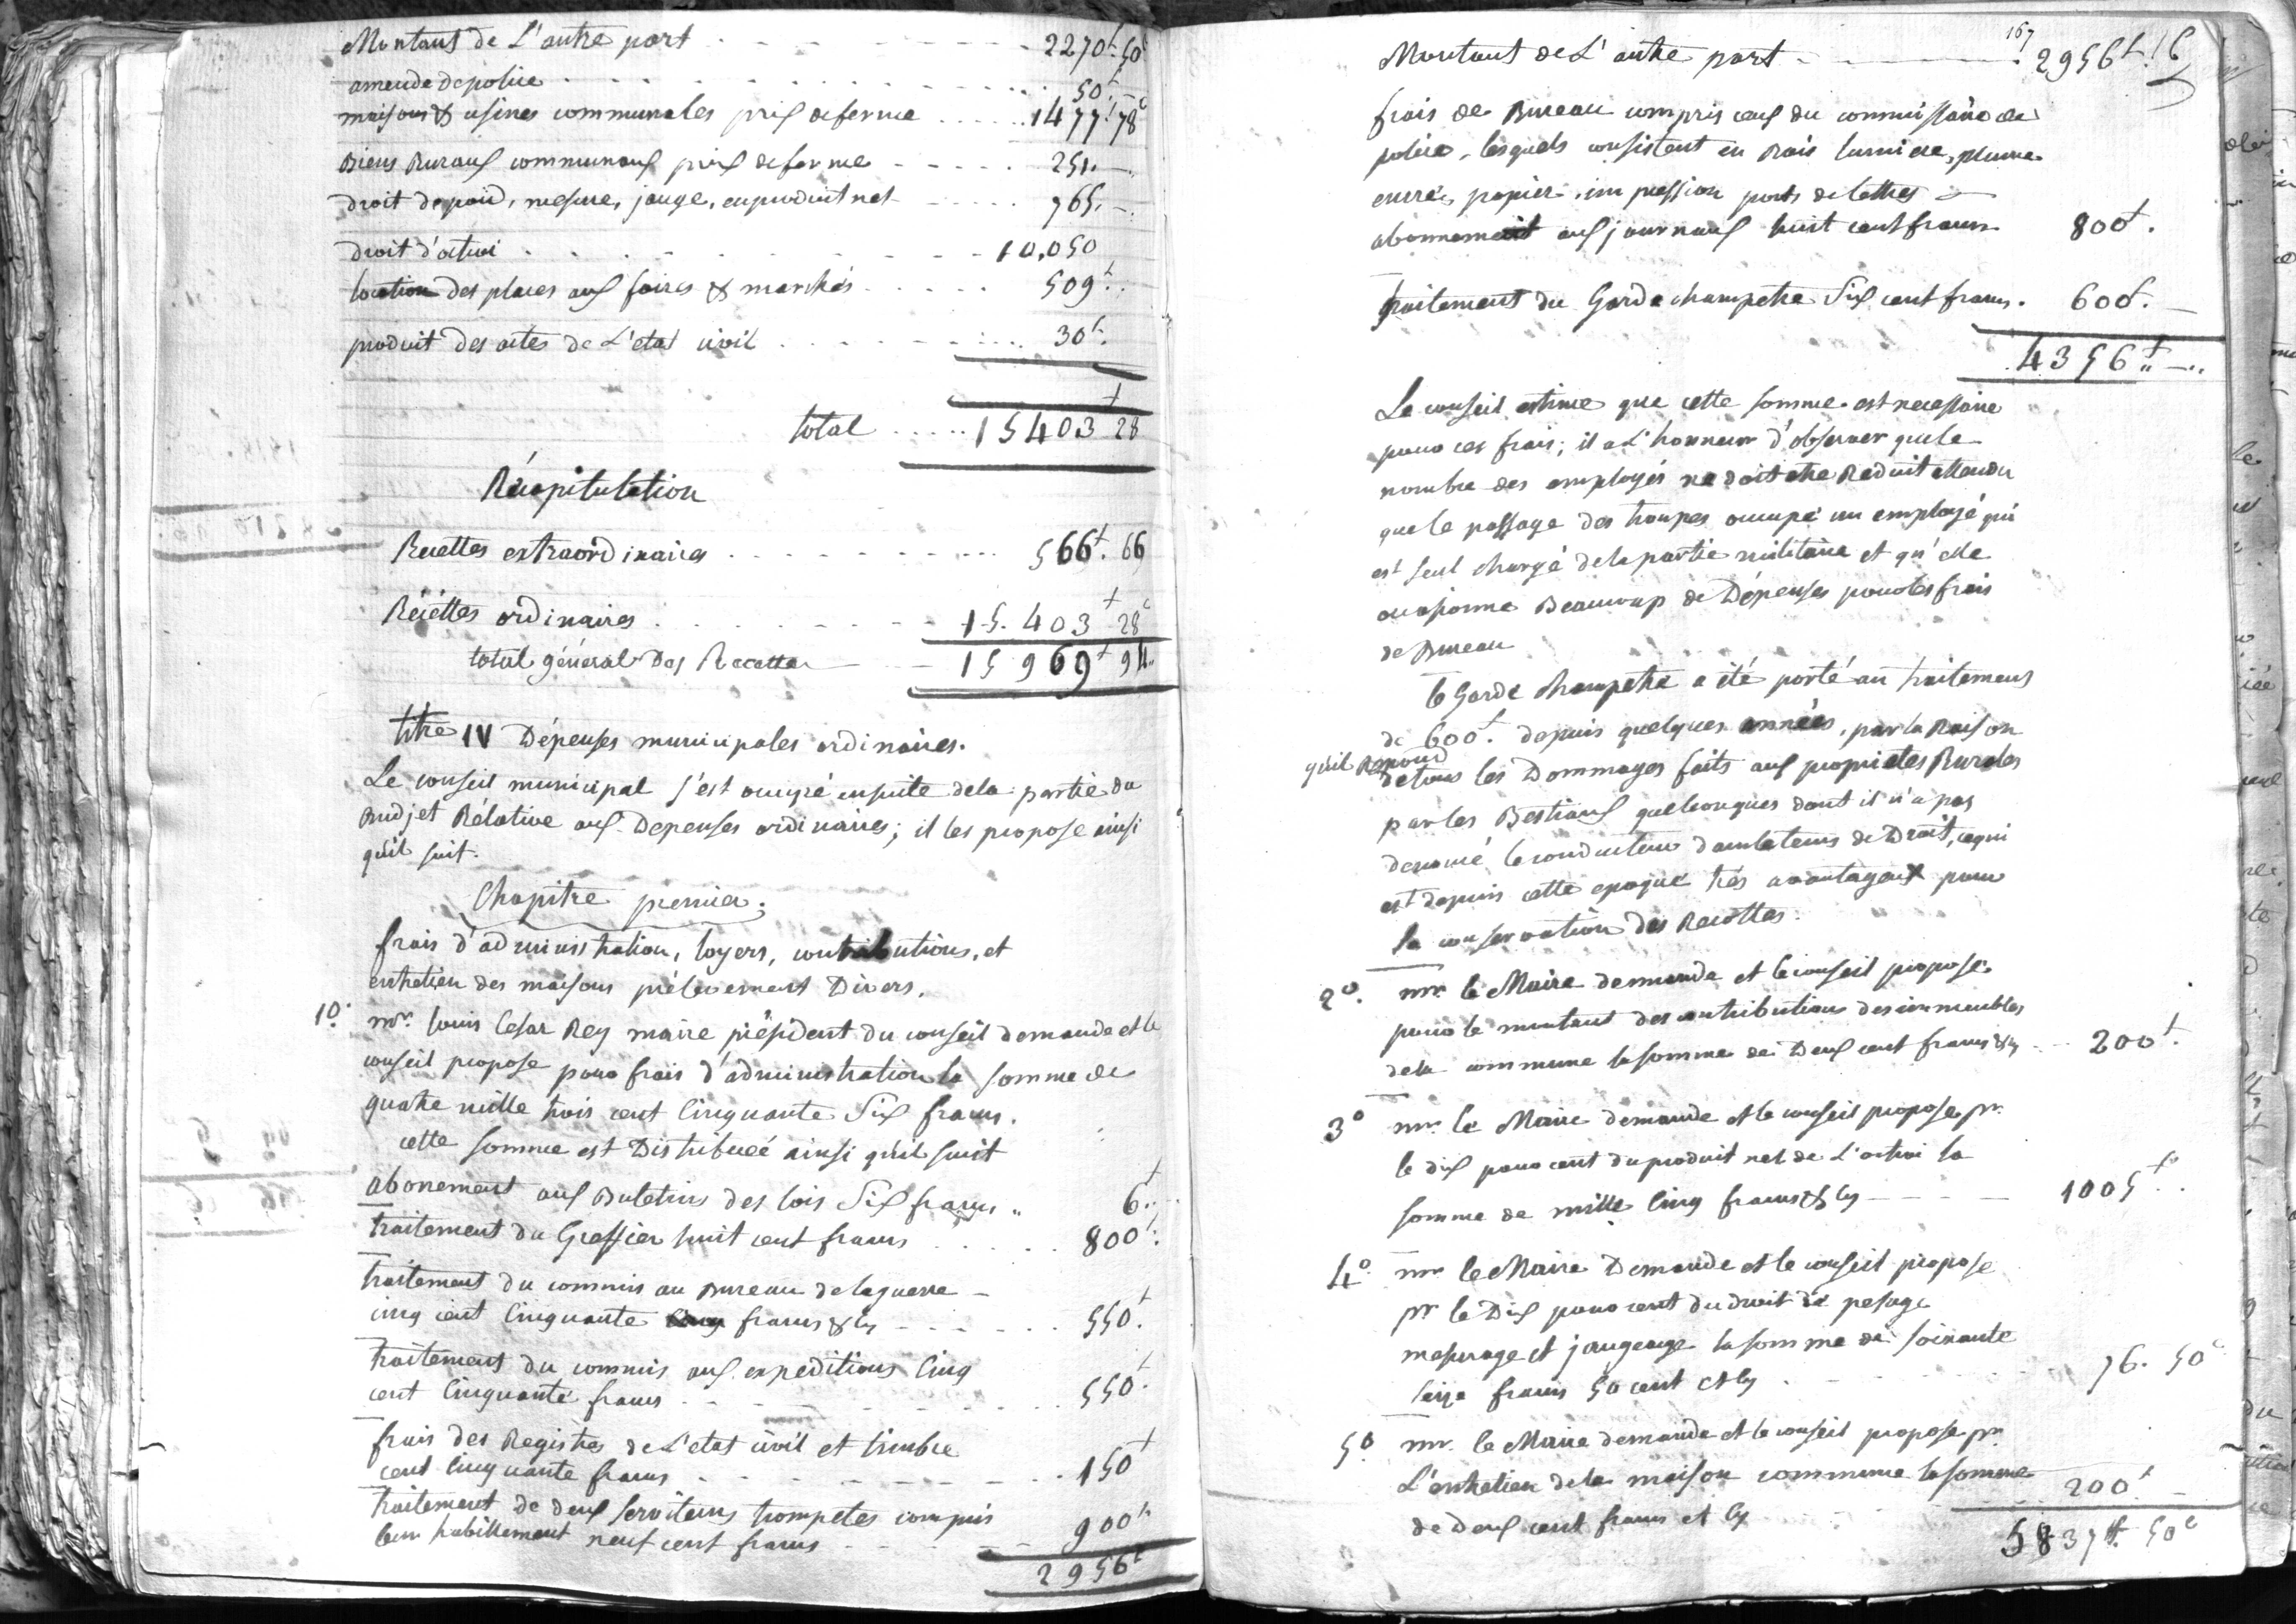 Montant de L'autre part 2270f. 50c
amende de police 50f.
maisons & usines communales prix de ferme 1477f 78c
Biens Ruraux communaux prix de ferme 251.
droit de poid, mesure, jauge, en produit net 765.
droit d'octroi 10,050
location des places aux foires & marchés 509f.
produit des actes de L'état civil 30f.
total 15403f 28
Récapitulation
Recettes extraordinaires 566f. 66
Récéttes ordinaires 15.403f 28c
total général des Recettes 15969f 94
titre IV Dépenses municipales ordinaires.
Le conseil municipal s'est occupé ensuite de la partie du
Budjet Rélative aux Depenses ordinaires; il les propose ainsi
qu'il suit.
Chapitre premier.
frais d'administration, loyers, contributions, et
entretien des maisons prélevement Divers.
1o. mr. Louis Cesar Rey maire président du conseil demande et le
conseil propose pour frais d'administration la somme de
quatre mille trois cent Cinquante Six francs.
cette somme est Distribueé ainsi qu'il suit
abonement aux Buletins des lois Six francs 6f.
traitement du Greffier huit cent francs 800f.
traitement du commis au Bureau de la guerre
cinq cent Cinquante francs & cy 550f.
traitement du commis aux expeditions Cinq
cent Cinquante francs 550f.
frais des Registres de L'etat civil et timbre
cent cinquante francs 150f
traitement de deux Serviteurs trompetes compris
leur habillement neuf cent francs 900f.
2956f
167
Montant de L'autre part 2956f
frais de Bureau compris ceux du commissaire de
police, lesquels consistent en Bois lumiere, plume
encre, papier, impression ports de lettres
abonnement aux journaux huit cent francs 800f.
traitement du Garde champetre Six cent francs. 600f.
4356f.
Le conseil estime que cette somme est necessaire
pour ces frais; il a L'honneur d'observer que le
nombre des employés ne doit etre Réduit attendu
que le passage des troupes occupe un employé qui
est seul chargé de la partie militaire et qu'elle
occasionne Beaucoup de Dépenses pour les frais
de Bureau
le Garde champetre a été porté au traitement
de 600f. depuis quelques années, par la Raison
qu'il Repond
de tous les Dommages faits aux proprietes Rurales
par les Bestiaux quelconques dont il n'a pas
denoncé le conducteur dans le tems de Droit, ce qui
est depuis cette epoque trés avantageux pour
la conservation des Recottes.
2o. mr. le Maire demande et le conseil propose
pour le montant des contributions des immeubles
de la commune la somme de Deux cent francs & cy 200f.
3o mr. le Maire demande et le conseil propose pr.
le dix pour cent du produit net de L'octroi la
somme de mille Cinq francs & cy 1005f.
4o. mr le Maire Demande et le conseil propose
pr le Dix pour cent du droit de pesage
mesurage et jaugeage la somme de soixante
seize francs 50 cent et cy 76. 50c
5o mr. le Maire demande et le conseil propose pr.
L'entretien de la maison commune la somme
de Deux cent francs et cy 200f.
5837f. 50c